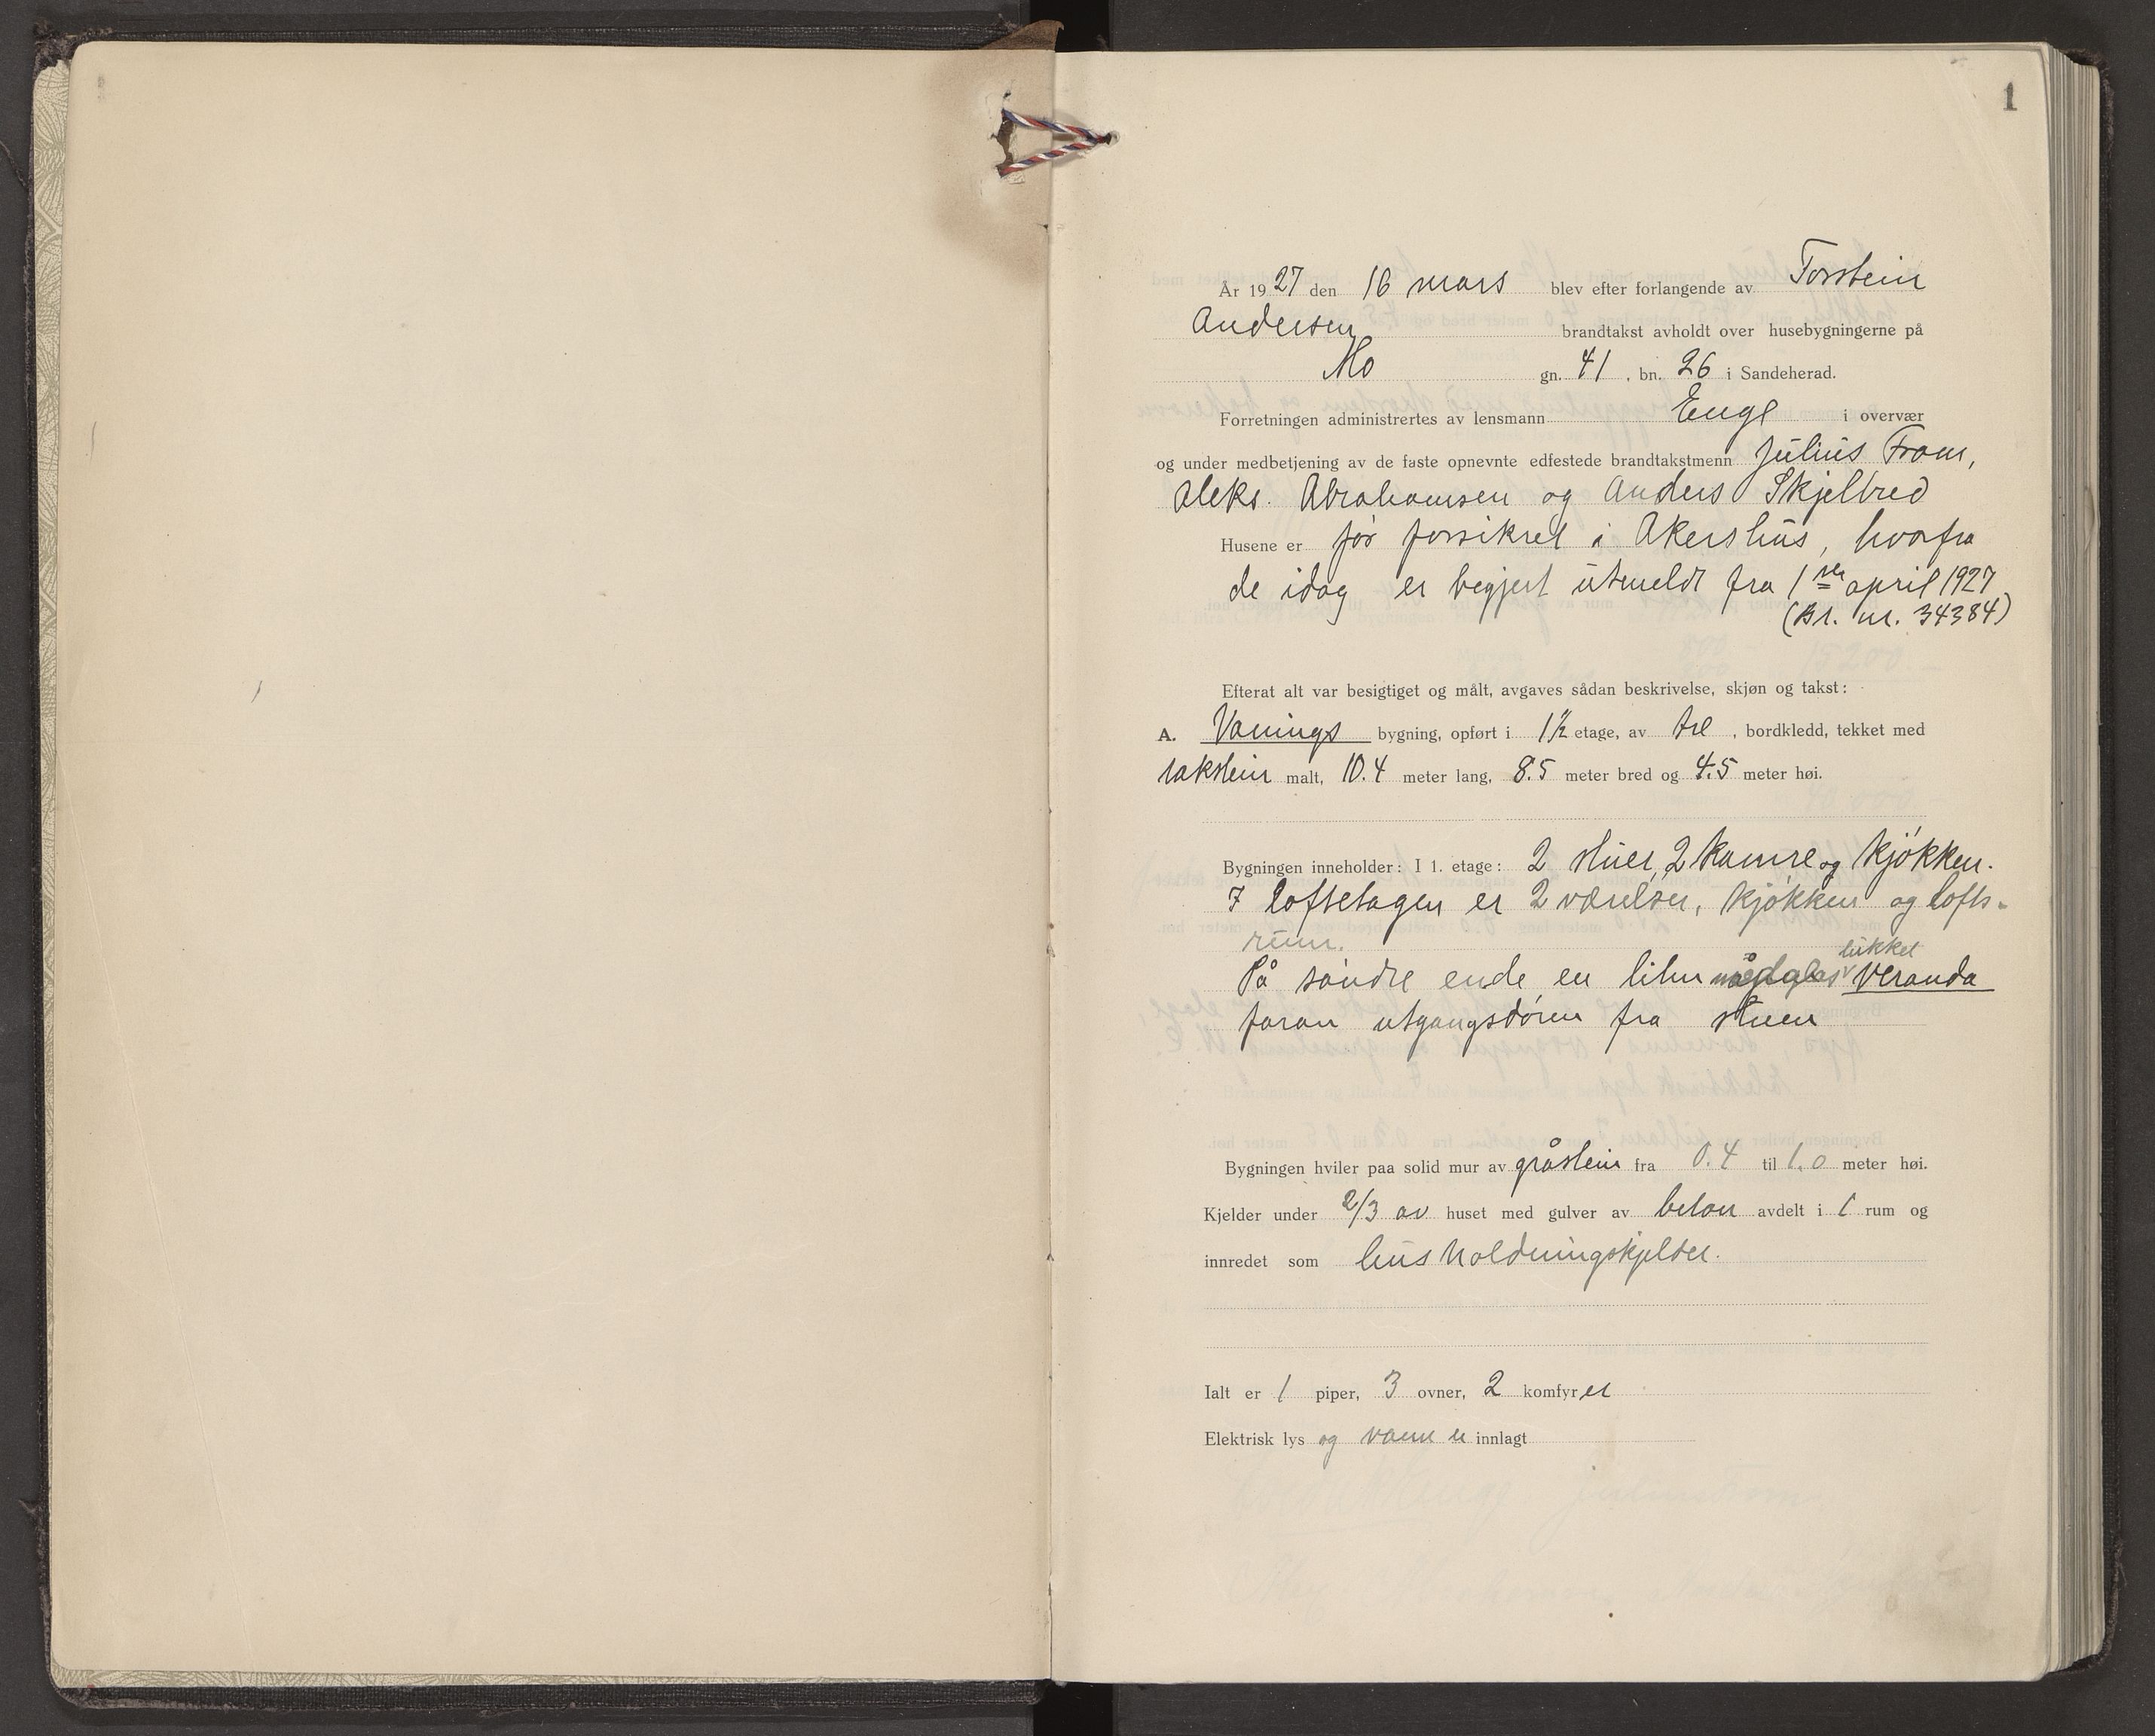 1
År 1927 den 16 mars blev efter forlangende av Torstein
Andersen brandtakst avholdt over husebygningerne på
Mo gn. 41, bn. 26 i Sandeherad.
Forretningen administrertes av lensmann Enge i overvær
og under medbetjening av de faste opnevnte edfestede brandtakstmenn Julius Fram,
Aleks. Abrahamsen og Anders Skjelbred
Husene er før forsikret i Akershus, hvorfra
de idag er begjert utmeldt fra 1ste april 1927
(Br. nr. 34384)
Efterat alt var besigtiget og målt, avgaves sådan beskrivelse, skjøn og takst:
A. Vånings bygning, opført i 1½ etage, av tre, bordkledd, tekket med
takstein malt, 10.4 meter lang, 8.5 meter bred og 4.5 meter høi.
Bygningen inneholder: I 1. etage: 2 stuer, 2 kamre og kjøkken.
I loftsetagen er 2 værelser, kjøkken og lofts-
rum.
lukket
På søndre ende en liten veranda
foran utgangsdøren fra stuen
Bygningen hviler paa solid mur av gråstein fra 0.4 til 1.0 meter høi.
Kjelder under 2/3 av huset med gulver av beton avdelt i 1 rum og
innredet som husholdningskjelder.
Ialt er 1 piper, 3 ovner, 2 komfyrer
Elektrisk lys og vann er innlagt